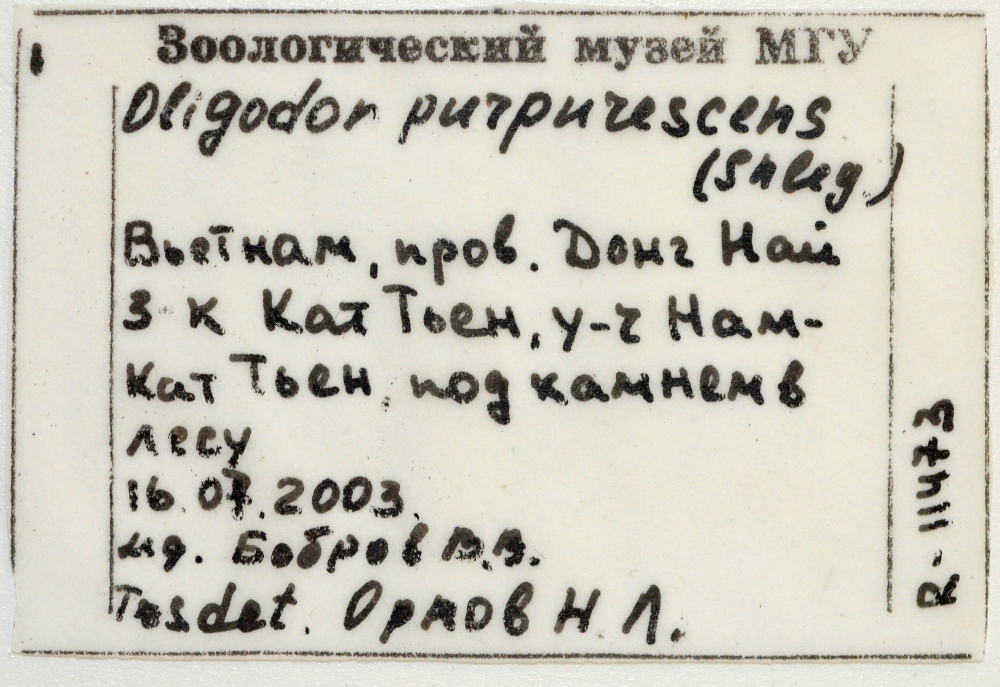 Зоологический музей МГУ
Oligodon purpurescens
(Shleg)
Вьетнам, пров. Донг Най
З к Кат Тьен, у-ч Нам-
Кат Тьен, под камнем в
лесу
16.07.2003.
Бобров В.В.
det. Орлов Н Л.
R-11473